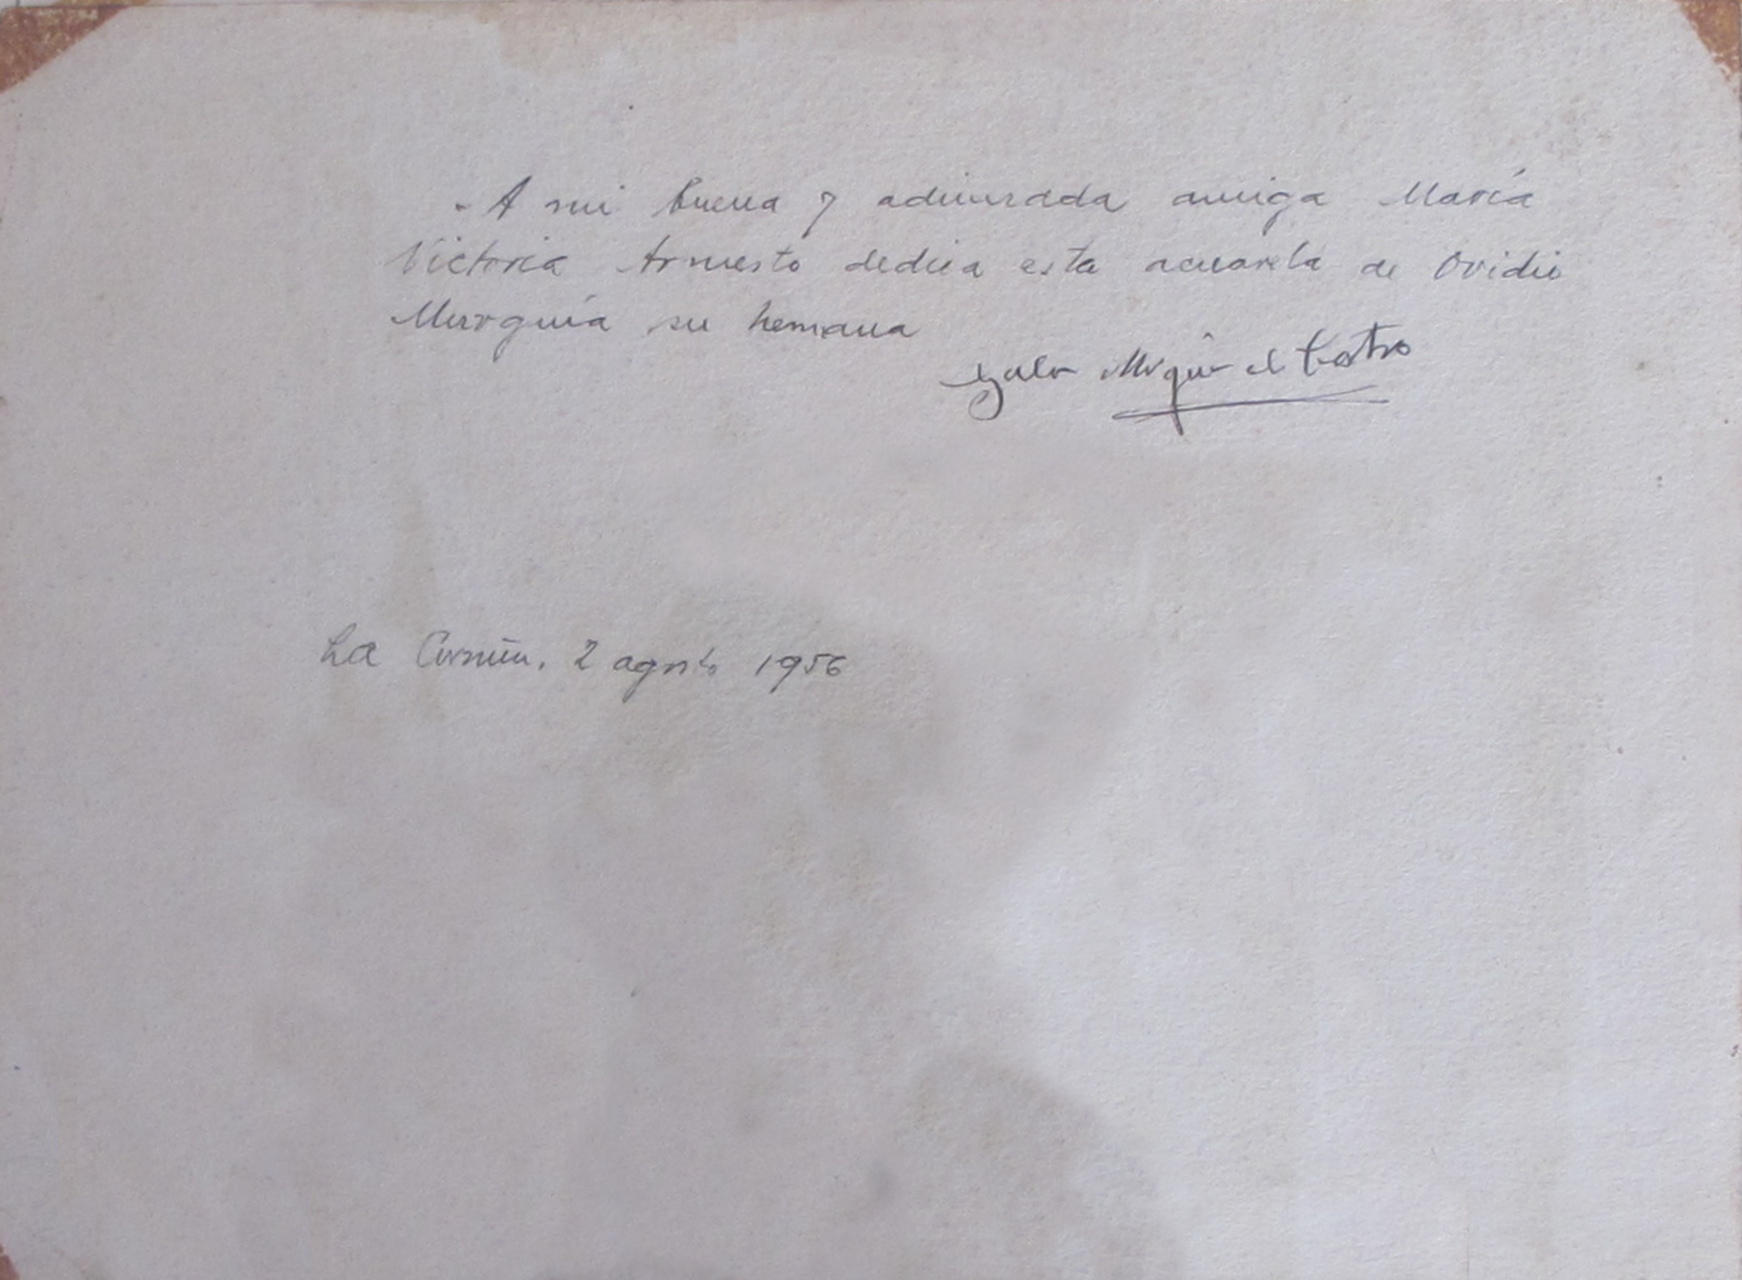 - A mi buena y admirada amiga María
Victoria Armesto dedica esta acuarela de Ovidio
Murguía su hermana
Gala Murguía de Castro
La Coruña, 2 agosto 1956